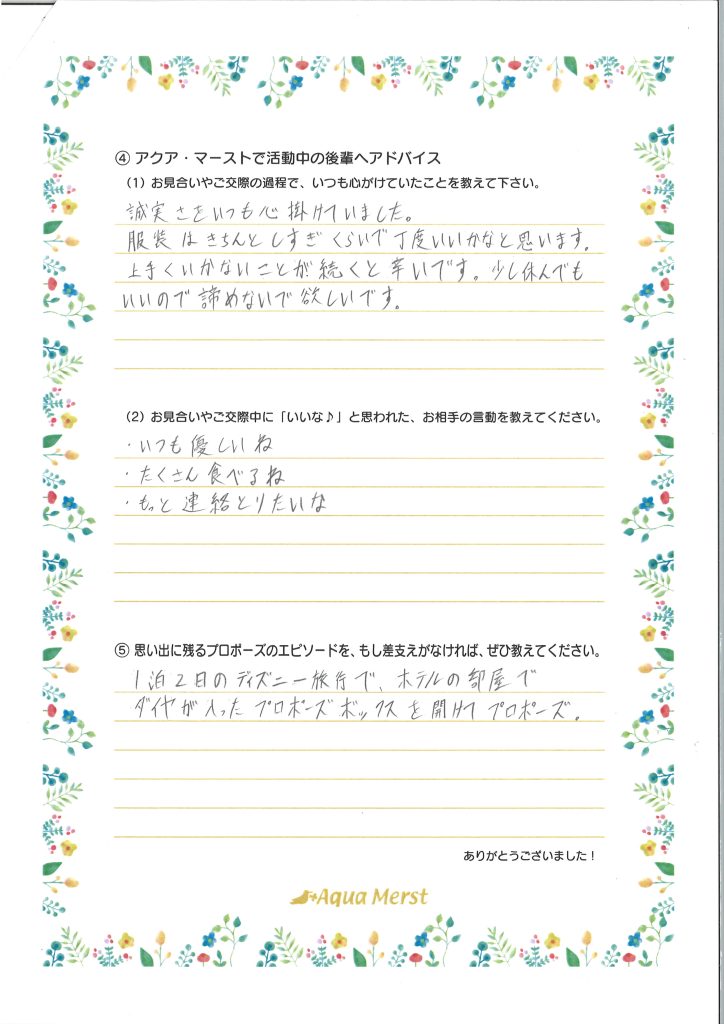 ④ アクア・マーストで活動中の後輩へアドバイス
（1）お見合いやご交際の過程で、いつも心がけていたことを教えて下さい。
誠実さをいつも心掛けていました。
服装はきちんとしすぎくらいで丁度いいかなと思います。
上手くいかないことが続くと辛いです。少し休んでも
いいので諦めないで欲しいです。
（2）お見合いやご交際中に「いいな♪」と思われた、お相手の言動を教えてください。
・いつも優しいね
・たくさん食べるね
・もっと連絡とりたいな
⑤ 思い出に残るプロポーズのエピソードを、もし差支えがなければ、ぜひ教えてください。
1泊2日のディズニー旅行で、ホテルの部屋で
ダイヤが入ったプロポーズボックスを開けてプロポーズ。
ありがとうございました！
Aqua Merst